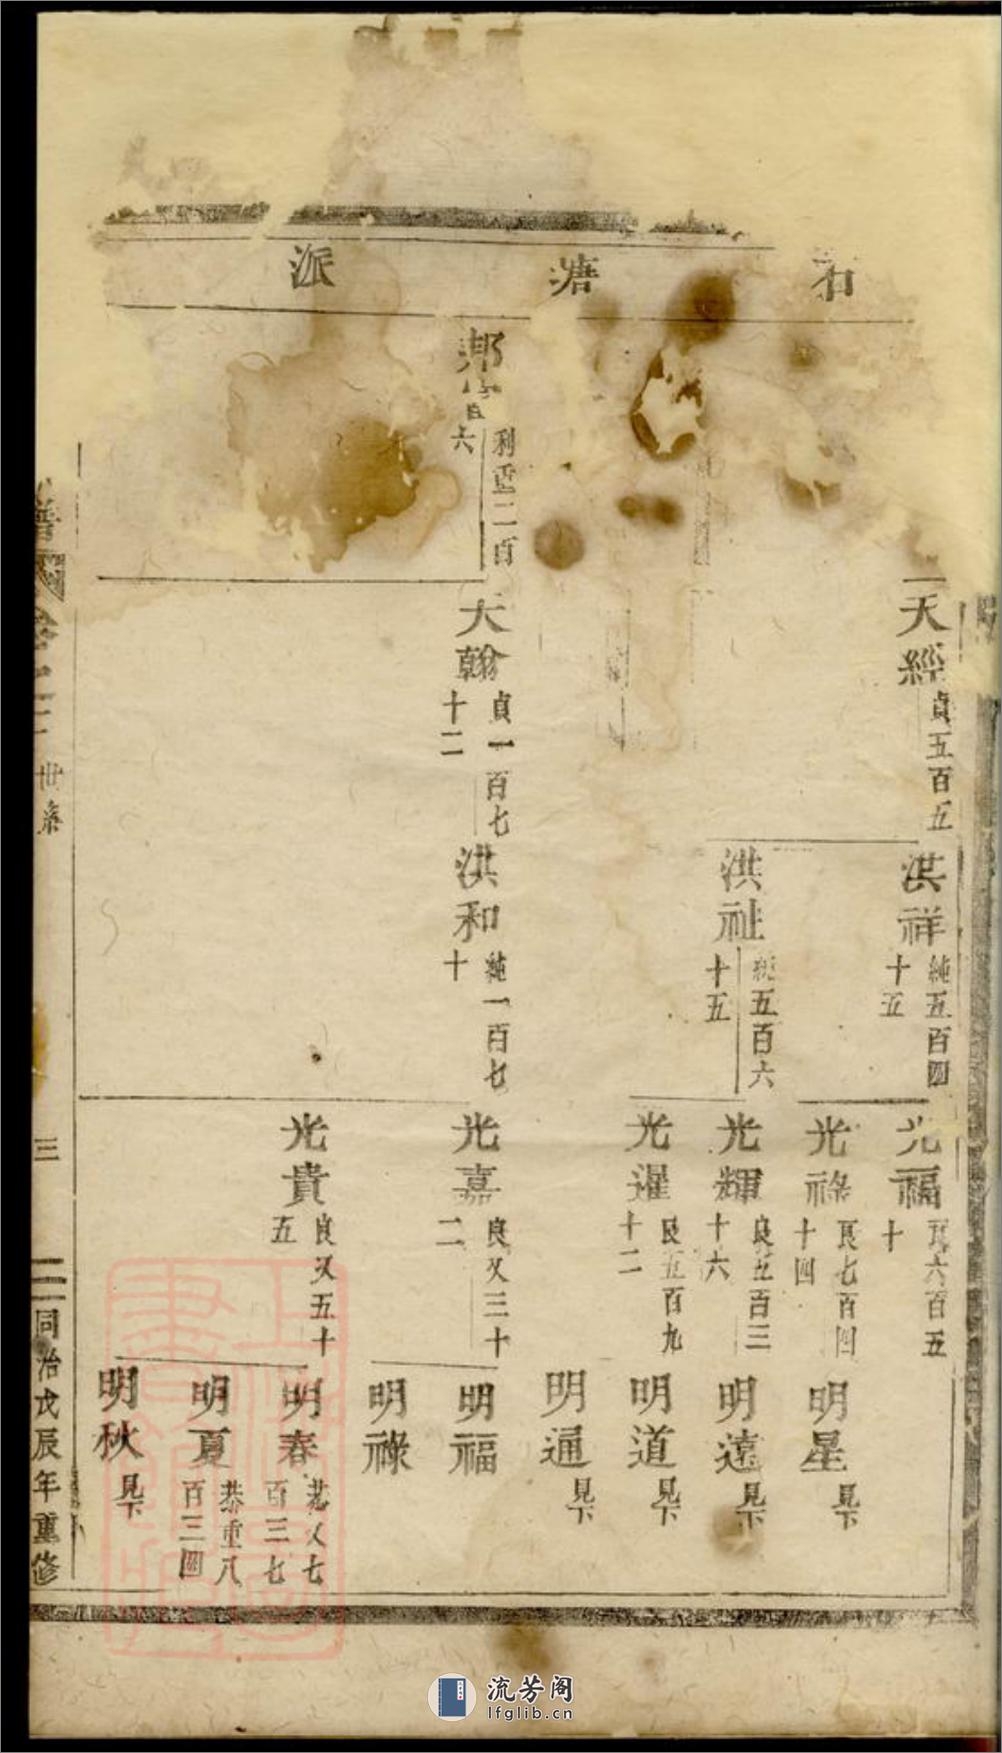 石塘派
天經
貞五百五
洪祥
純五百四
十五
光福
良六百五
十
光祿
良七百四
十四
明星
見下
洪祉
純五百六
十五
光輝
良五百三
十六
明遠
見下
光暹
良五百九
十二
明道
見下
明通
見下
邦
利重二百
六
大翰
貞一百七
十二
洪和
純一百七
十
光嘉
良又三十
二
明福
明祿
光貴
良又五十
五
明春
恭又七
百三七
明夏
恭重八
百三四
明秋
見下
譜
卷之二
世系
三
同治戊辰年重修
流芳阁
lfglib.cn